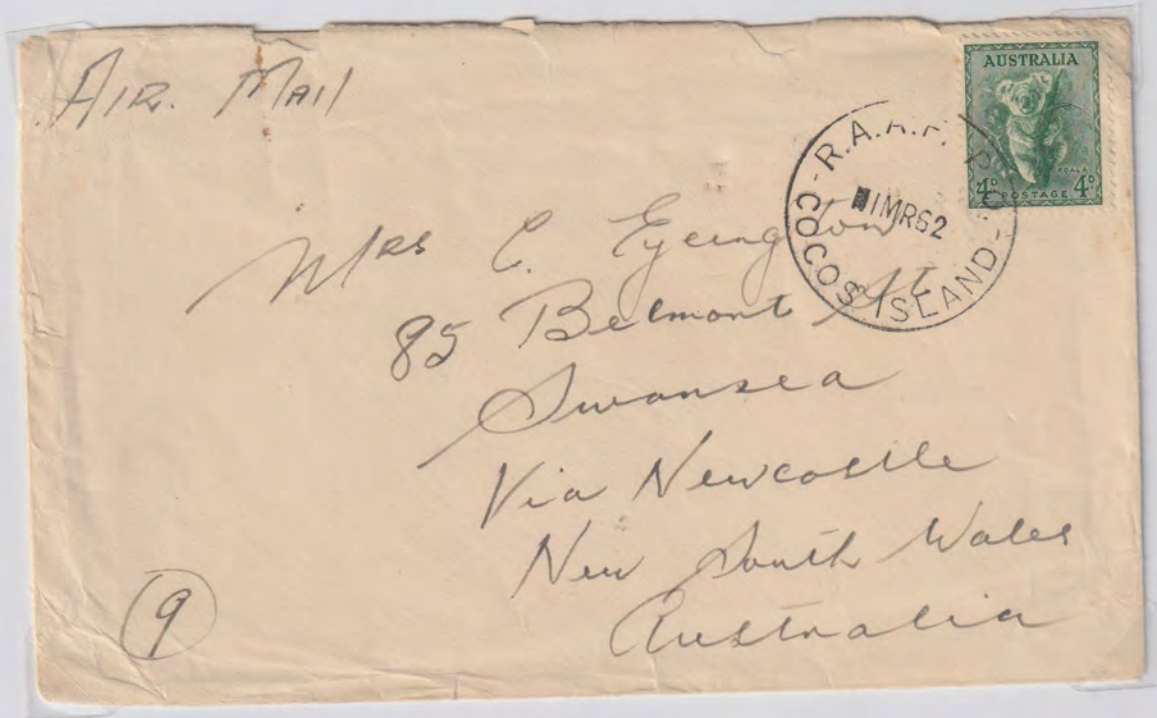 AIR. MAIL
AUSTRALIA
KOALA
4D POSTAGE 4D
R.A.A.F. P.O.
1MR62
COCOS ISLAND
Mrs C. Eyeington
85 Belmont St
Swansea
Via Newcastle
New South Wales
Australia
9